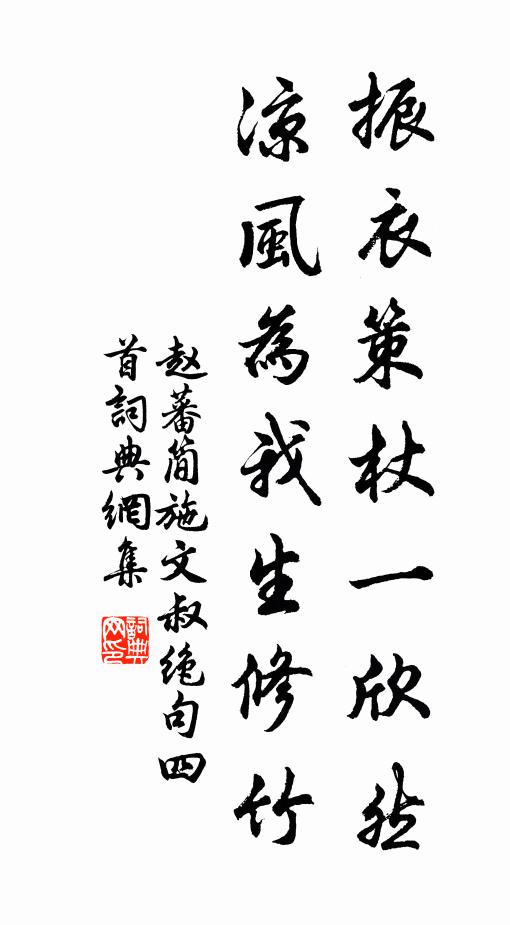 振衣策杖一欣然
涼風為我生修竹
赵蕃简施文叔绝句四
首詞典網集
詞典网印